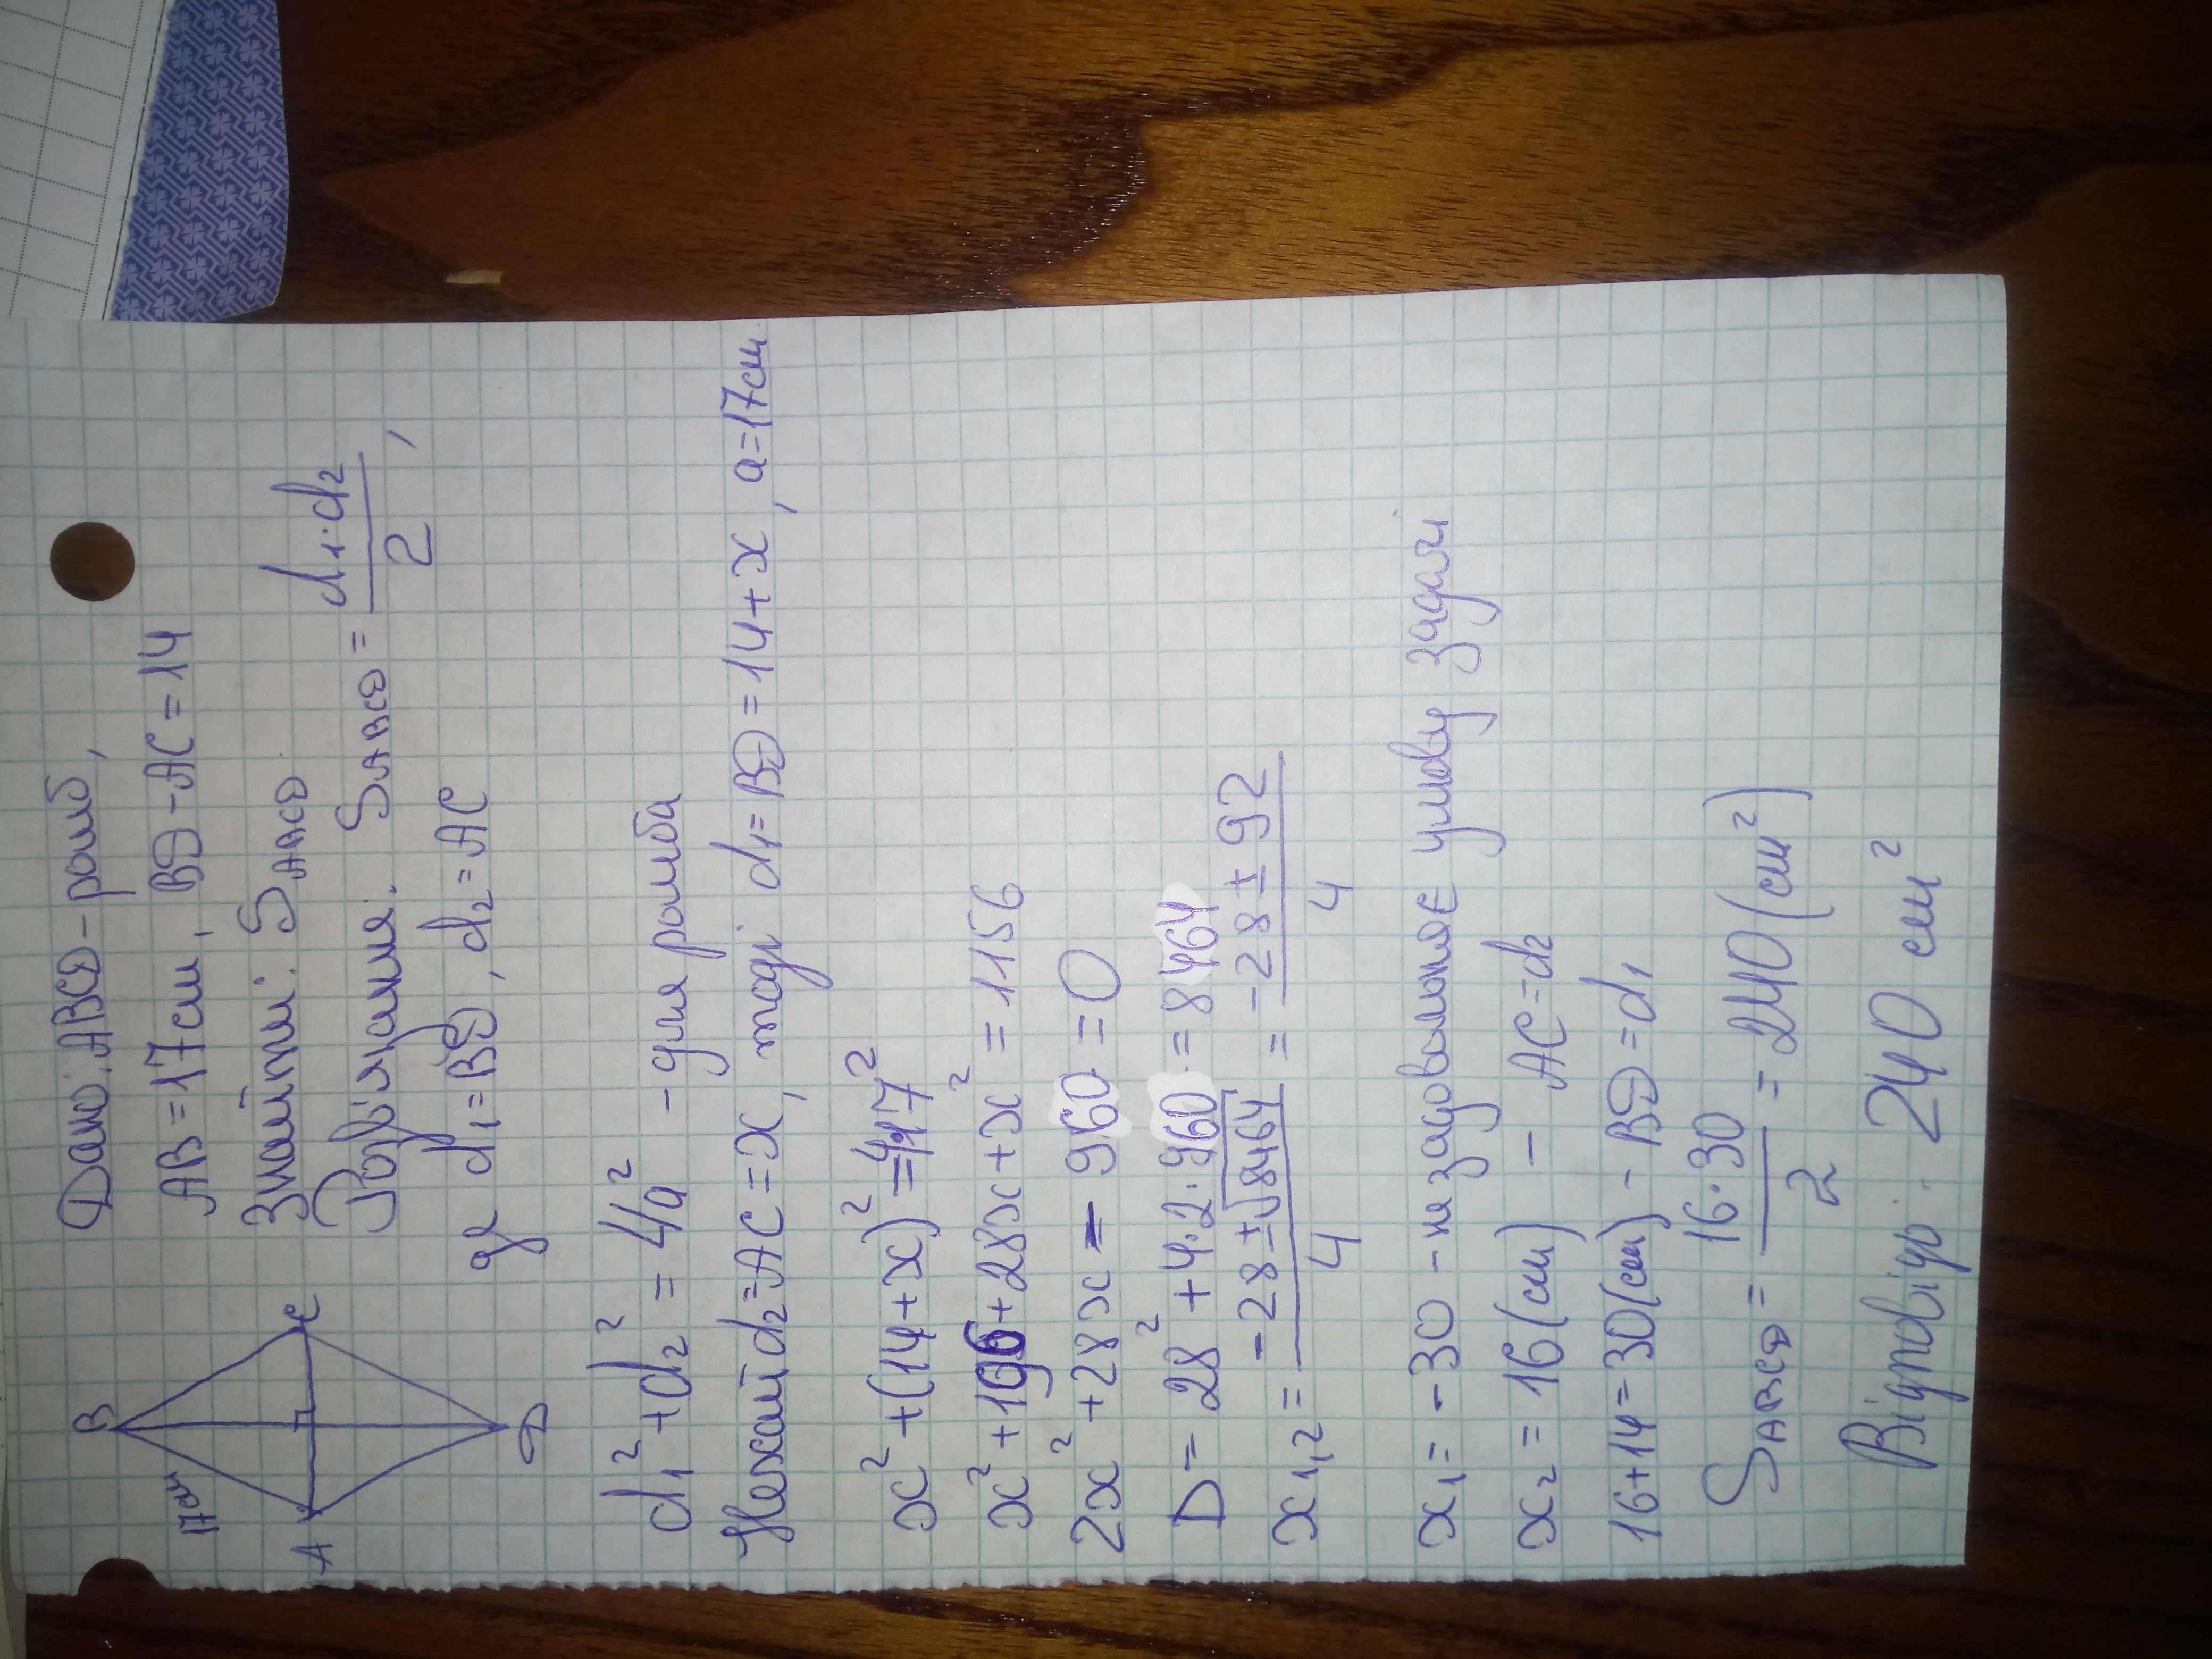 B
17см
A
C
D
Дано: ABCD - ромб,
AB = 17 см, BD - AC = 14
Знайти: S ABCD
Розв'язання. S ABCD = d₁·d₂/2,
де d₁ = BD, d₂ = AC
d₁² + d₂² = 4a² - для ромба
Нехай d₂ = AC = x, тоді d₁ = BD = 14 + x, a = 17 см.
x² + (14 + x)² = 4·17²
x² + 196 + 28x + x² = 1156
2x² + 28x - 960 = 0
D = 28² + 4·2·960 = 8464
x₁,₂ = (-28 ± √8464)/4 = (-28 ± 92)/4
x₁ = -30 - не задовольняє умову задачі
x₂ = 16 (см) - AC = d₂
16 + 14 = 30 (см) - BD = d₁
S ABCD = 16·30/2 = 240 (см²)
Відповідь: 240 см²